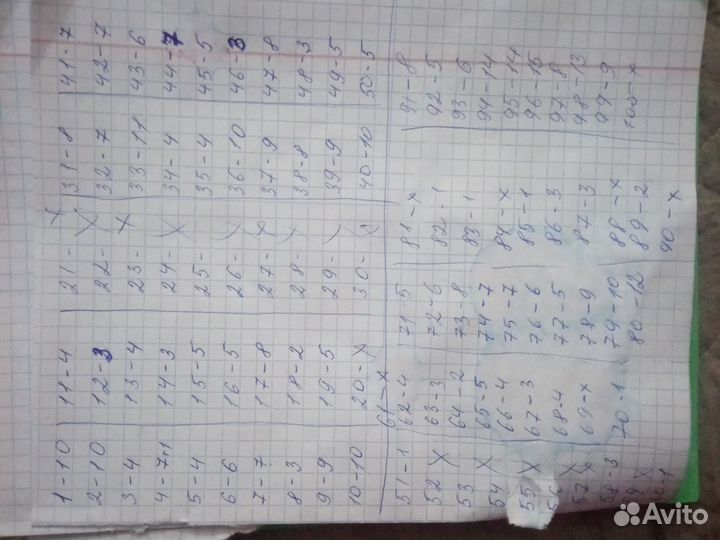 1-10
2-10
3-4
4-7+1
5-4
6-6
7-7
8-3
9-9
10-10
11-4
12-3
13-4
14-3
15-5
16-5
17-8
18-2
19-5
20-x
21- x
22- x
23- x
24- x
25-
26-
27- x
28-
29-
30-
31-8
32-7
33-11
34-4
35-4
36-10
37-9
38-8
39-9
40-10
41-7
42-7
43-6
44-7
45-5
46-3
47-8
48-3
49-5
50-5
51-1
52 x
53 x
54 x
55 x
56 x
57 x
58-3
x
61-x
62-4
63-3
64-2
65-5
66-4
67-3
68-4
69-x
70-1
71-5
72-6
73-8
74-7
75-7
76-6
77-5
78-9
79-10
80-12
81-x
82-1
83-1
84-x
85-1
86-3
87-3
88-x
89-2
90-x
91-8
92-5
93-6
94-14
95-14
96-15
97-8
98-13
99-9
100-x
Avito